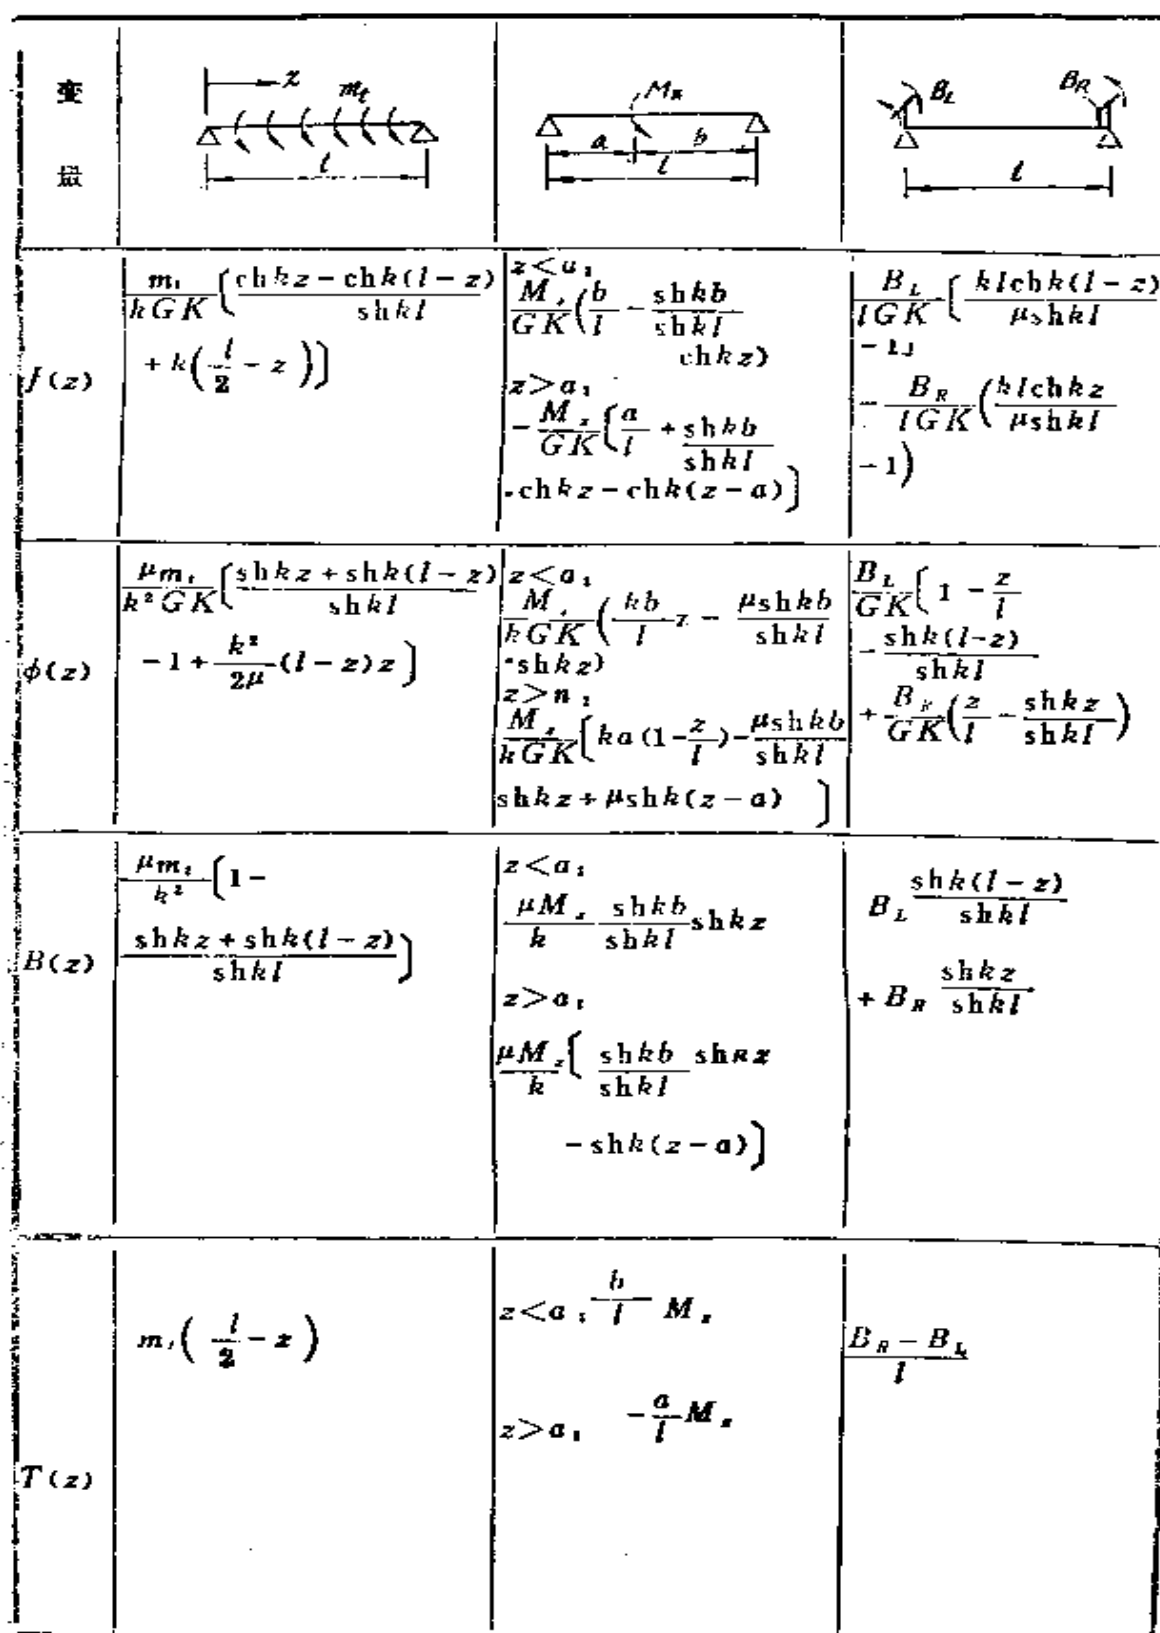 变量
z
m_t
l
M_z
a
b
l
B_L
B_R
l
f(z)
\frac{m_t}{kGK}[\frac{chkz-chk(l-z)}{shkl}
+k(\frac{l}{2}-z)]
z<a:
\frac{M_z}{GK}(\frac{b}{l}-\frac{shkb}{shkl}
chkz)
z>a:
-\frac{M_z}{GK}[\frac{a}{l}+\frac{shkb}{shkl}
·chkz-chk(z-a)]
\frac{B_L}{lGK}[\frac{klchk(l-z)}{μshkl}
-1]
-\frac{B_R}{lGK}(\frac{klchkz}{μshkl}
-1)
φ(z)
\frac{μm_t}{k²GK}[\frac{shkz+shk(l-z)}{shkl}
-1+\frac{k²}{2μ}(l-z)z]
z<a:
\frac{M_z}{kGK}(\frac{kb}{l}z-\frac{μshkb}{shkl}
·shkz)
z>a:
\frac{M_z}{kGK}[ka(1-\frac{z}{l})-\frac{μshkb}{shkl}
shkz+μshk(z-a)]
\frac{B_L}{GK}[1-\frac{z}{l}
-\frac{shk(l-z)}{shkl}
+\frac{B_R}{GK}(\frac{z}{l}-\frac{shkz}{shkl})
B(z)
\frac{μm_t}{k²}[1-
\frac{shkz+shk(l-z)}{shkl}]
z<a:
\frac{μM_z}{k}\frac{shkb}{shkl}shkz
z>a:
\frac{μM_z}{k}[\frac{shkb}{shkl}shkz
-shk(z-a)]
B_L\frac{shk(l-z)}{shkl}
+B_R\frac{shkz}{shkl}
T(z)
m_t(\frac{l}{2}-z)
z<a:\frac{b}{l}M_z
z>a: -\frac{a}{l}M_z
\frac{B_R-B_L}{l}